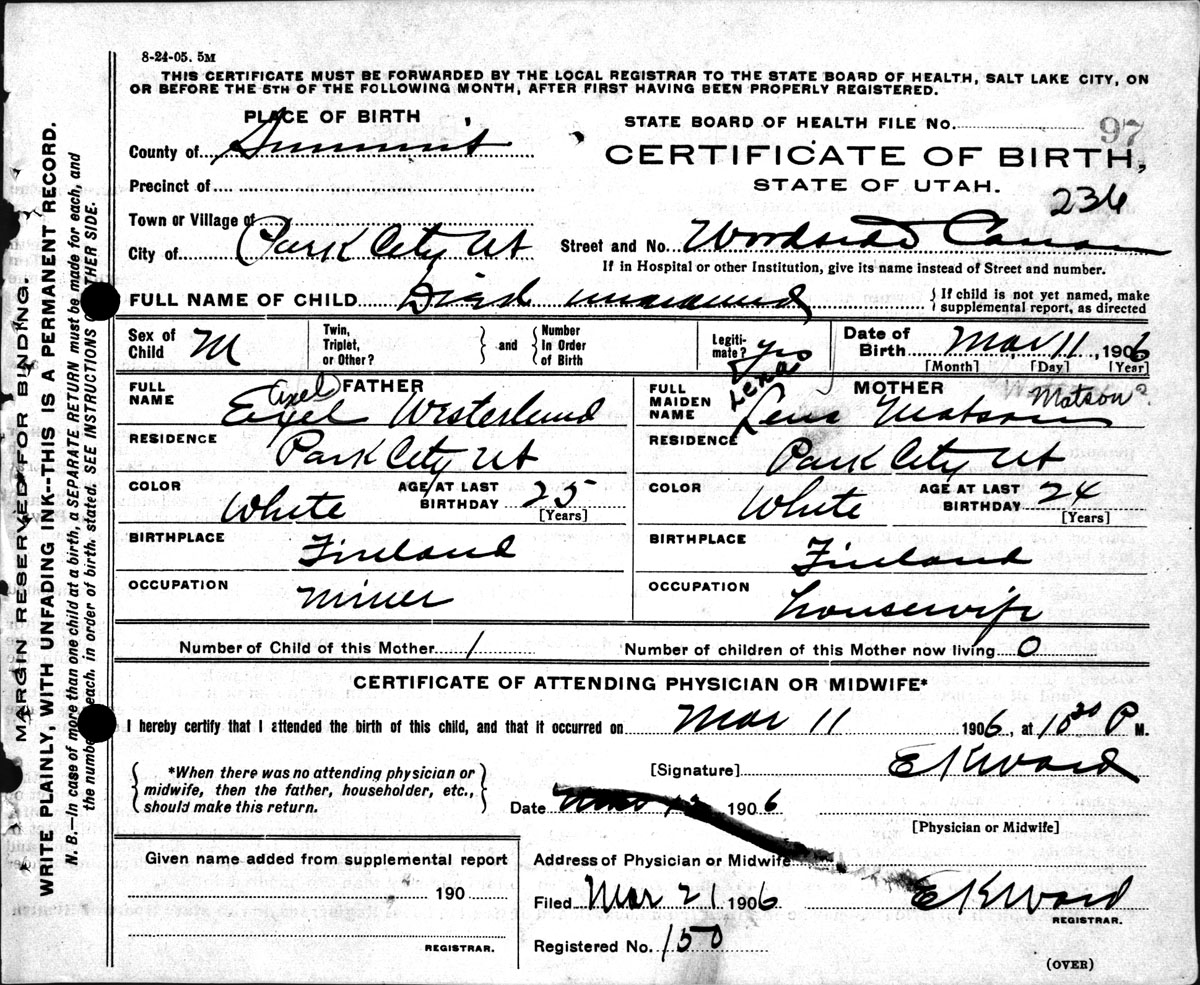 8-24-05. 5M
THIS CERTIFICATE MUST BE FORWARDED BY THE LOCAL REGISTRAR TO THE STATE BOARD OF HEALTH, SALT LAKE CITY, ON
OR BEFORE THE 5TH OF THE FOLLOWING MONTH, AFTER FIRST HAVING BEEN PROPERLY REGISTERED.
PLACE OF BIRTH
County of Summit
Precinct of
Town or Village of
City of Park City Ut
STATE BOARD OF HEALTH FILE No. 97
CERTIFICATE OF BIRTH,
STATE OF UTAH.
236
Street and No. Woodside Canon
If in Hospital or other Institution, give its name instead of Street and number.
FULL NAME OF CHILD Died unnamed
If child is not yet named, make
supplemental report, as directed
Sex of Child M
Twin, Triplet, or Other? and Number In Order of Birth
Legiti-mate? Yes
Date of Birth Mar 11, 1906
[Month] [Day] [Year]
FATHER
FULL NAME Exel Westerlund
Axel
RESIDENCE Park City Ut
COLOR White AGE AT LAST BIRTHDAY 25
[Years]
BIRTHPLACE Finland
OCCUPATION Miner
MOTHER
FULL MAIDEN NAME Lena Matson
Lena
Matson?
RESIDENCE Park City Ut
COLOR White AGE AT LAST BIRTHDAY 24
[Years]
BIRTHPLACE Finland
OCCUPATION housewife
Number of Child of this Mother 1 Number of children of this Mother now living 0
CERTIFICATE OF ATTENDING PHYSICIAN OR MIDWIFE*
I hereby certify that I attended the birth of this child, and that it occurred on Mar 11 1906, at 10 30 P M.
*When there was no attending physician or
midwife, then the father, householder, etc.,
should make this return.
[Signature] E K Ward
Date 1906
[Physician or Midwife]
Given name added from supplemental report
190
REGISTRAR.
Address of Physician or Midwife
Filed Mar 21 1906 E K Ward
REGISTRAR.
Registered No. 150
(OVER)
MARGIN RESERVED FOR BINDING.
WRITE PLAINLY, WITH UNFADING INK--THIS IS A PERMANENT RECORD.
N. B.—In case of more than one child at a birth, a SEPARATE RETURN must be made for each, and
the number each, in order of birth, stated. SEE INSTRUCTIONS OTHER SIDE.